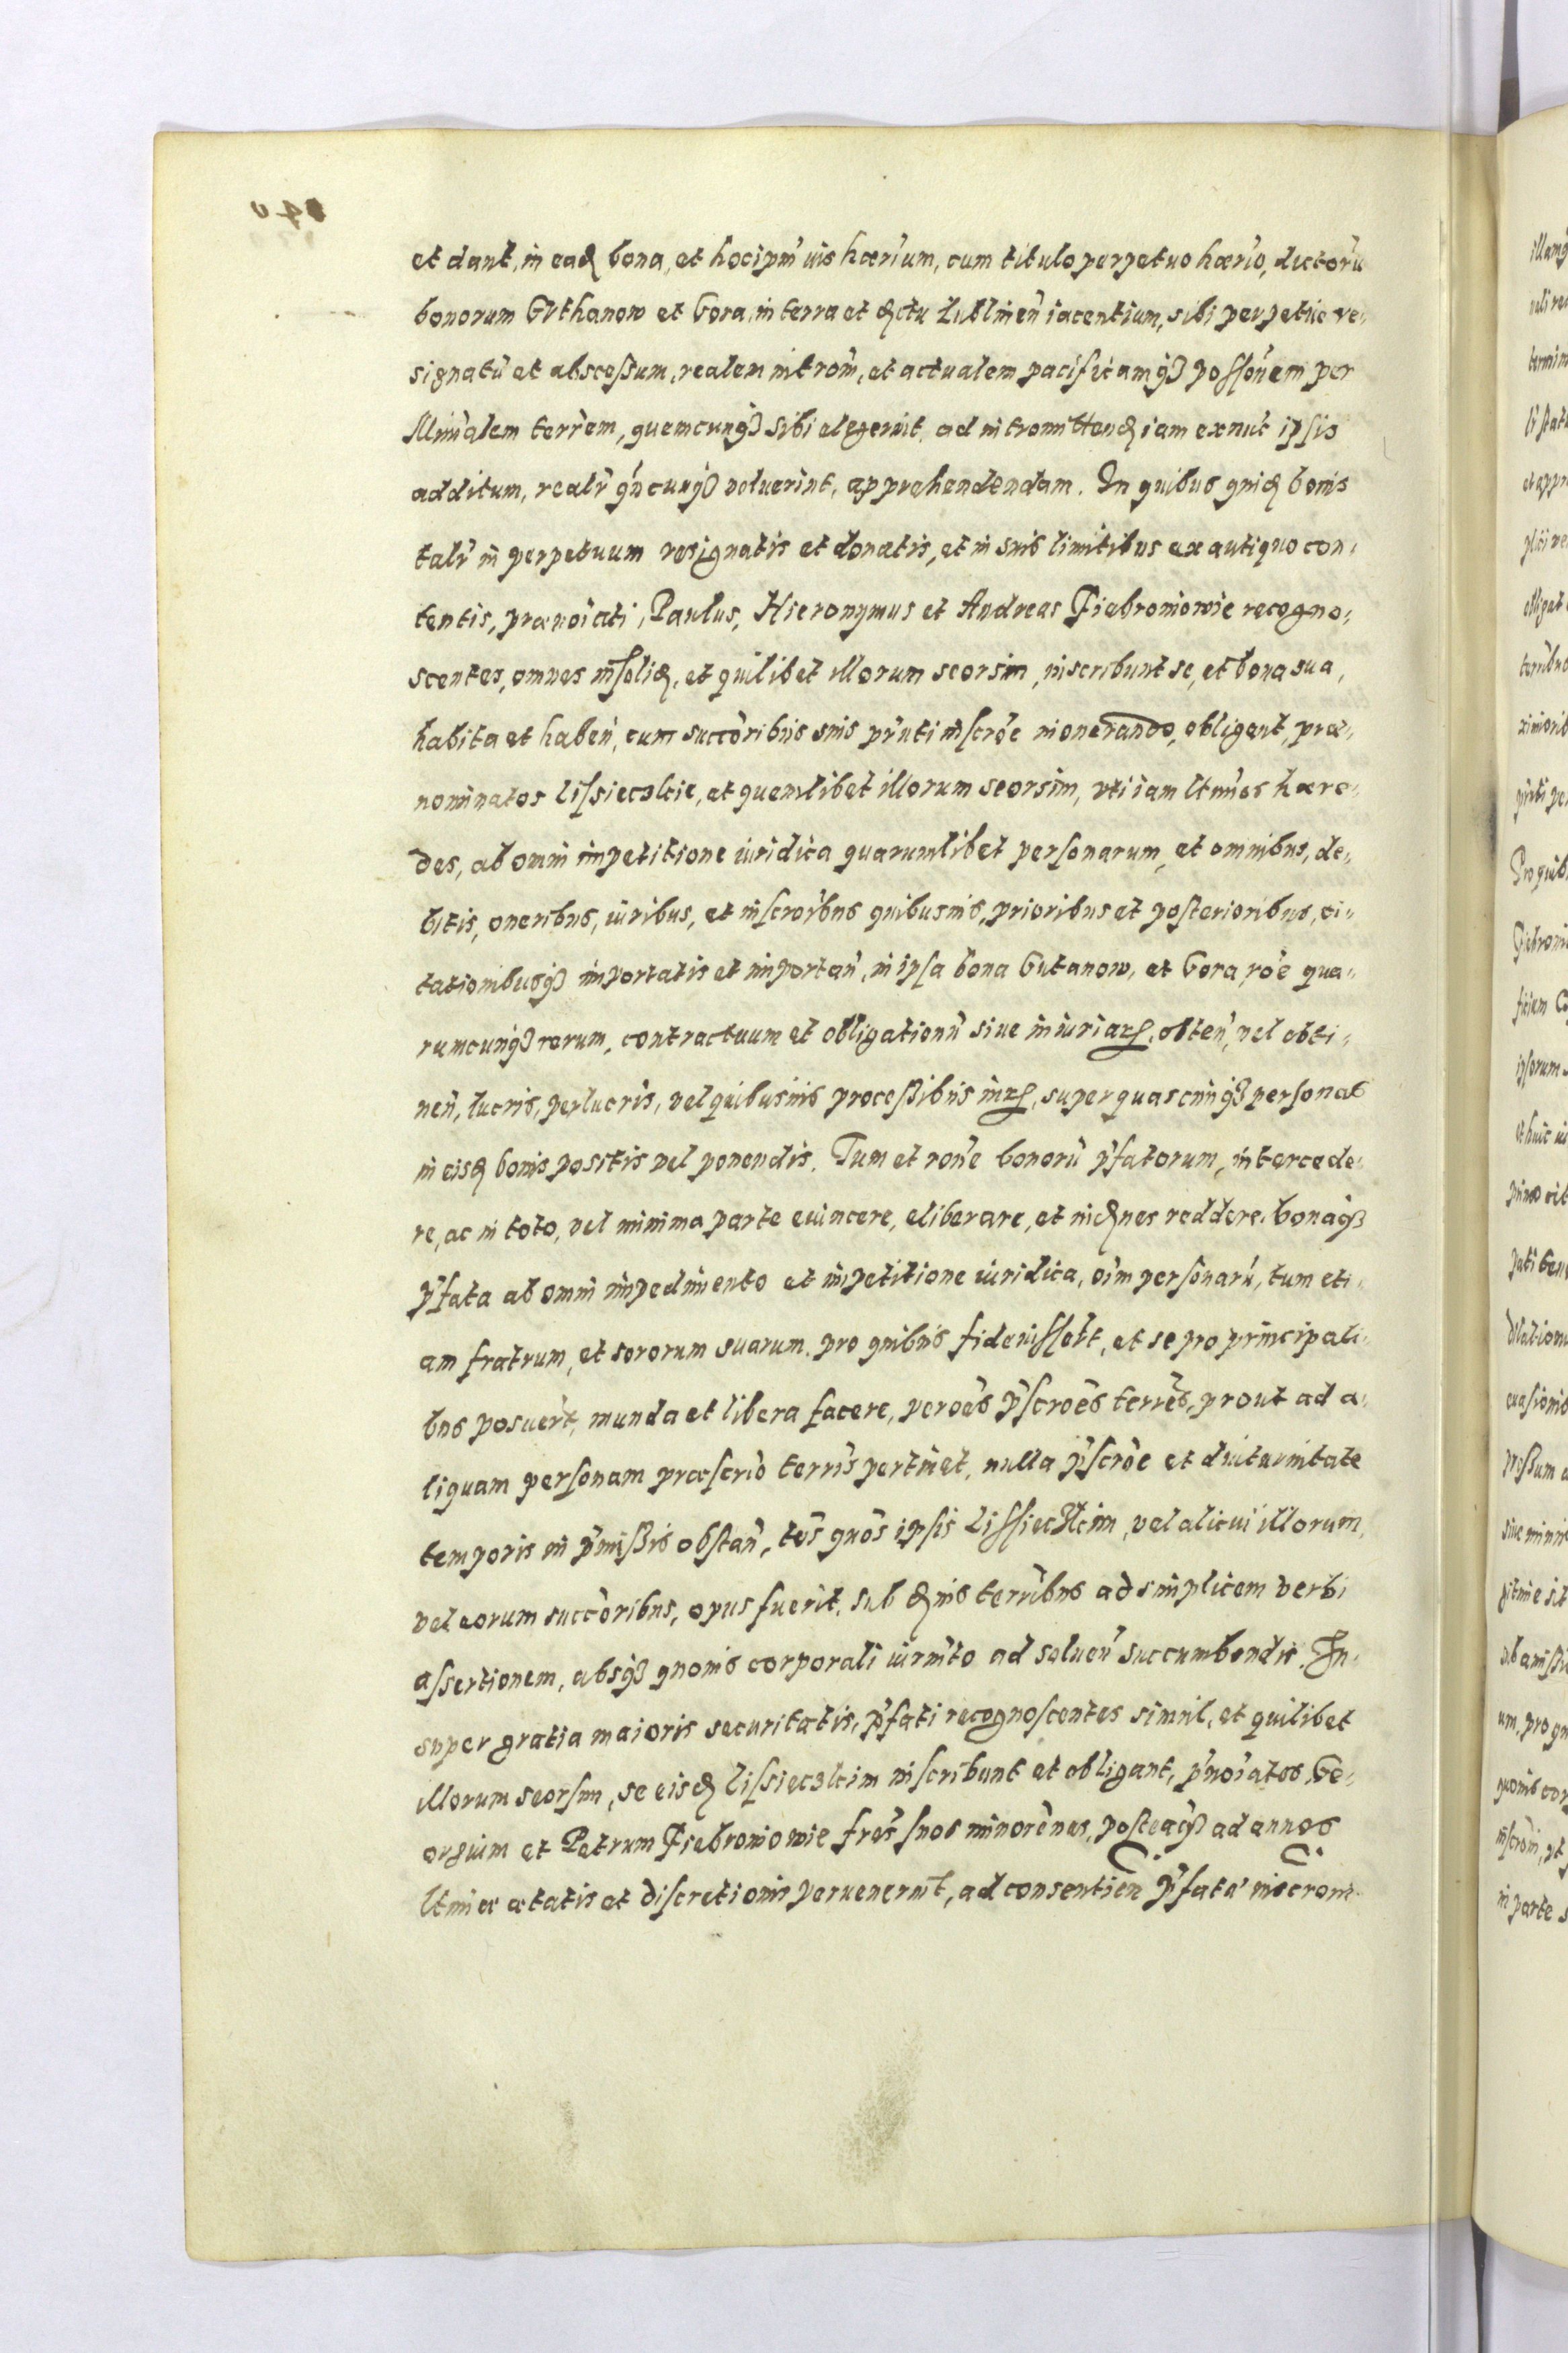 et dant, in eadꝫ bona, et hocipm̄ ius hærium, cum titulo perpetuo hærio, dictorū
bonorum Guthanow et Gora, in terra et dꝫctu Lublineñ iacentium, sibi perpetue re-
signatū et abscessum, realem introm̄, et actualem pacificamqꝫ possōnem per
Minīalem terrēm, quemcunqꝫ sibi elegerint, ad intromittendꝫ iam exnūt ipsis
additum, realr̄ qn̄cunqꝫ voluerint, apprehendendam. In quibus quidꝫ bonis
talr̄ in perpetuum resignatis et donatis, et in suis limitibus ex antiquo con-
tentis, prænoiati, Paulus, Hieronymus et Andreas Fiebroniowie recogno-
scentes, omnes insolidꝫ, et quilibet illorum seorsim, inscribunt se, et bona sua,
habita et habeñ, cum succōribus suis pn̄ti inscrōe inonerando, obligant, præ-
nominatos Lissiecɜlcie, et quemlibet illorum seorsim, vti iam ltimos hære-
des, ab omni impetitione iuridica quarumlibet personarum, et omnibus, de-
bitis, oneribus, iuribus, et inscrōibus quibusuis, prioribus et posterioribus, ci-
tationibusqꝫ importatis et importañ, in ipsa bona Gutanow, et Gora, rōe qua-
rumcunqꝫ rerum, contractuum et obligationū siue iniuriaꝝ, obteñ, vel obti-
neñ, lucris, perlucris, vel quibusuis processibus iuꝝ, super quascunqꝫ personas
in eisdꝫ bonis positis vel ponendis. Tum et ronē bonorū pfatorum, intercede-
re, ac in toto, vel minima parte euincere, eliberare, et indꝫnes reddere, bonaqꝫ
pfata ab omni impedimento et impetitione iuridica, oim personarū, tum eti-
am fratrum, et sororum suarum, pro quibus fideiussert, et se pro principali-
bus posuert, munda et libera facere, per oēs pscrōes terrēs, prout ad a-
liquam personam præscrio terris pertinet, nulla pscrōe et diuturnitate
temporis in pmissis obstañ, tos quos ipsis Lissiecɜlcim, vel alicui illorum,
vel eorum succōribus, opus fuerit, sub dꝫnis terribus ad simplicem verbi
assertionem, absqꝫ quonis corporali iurmto ad solueñ succumbendis. In-
super gratia maioris securitatis, pfati recognoscentes simul, et quilibet
illorum seorsim, se eisdꝫ Lissiecɜlcim inscribunt et obligant, pnoiatos Ge-
orgium et Petrum Fiebroniowie fres suos minorēnes, posteaqꝫ ad annos
ltimæ ætatis et discretionis peruenernt, ad consentieñ pfatæ inscrom